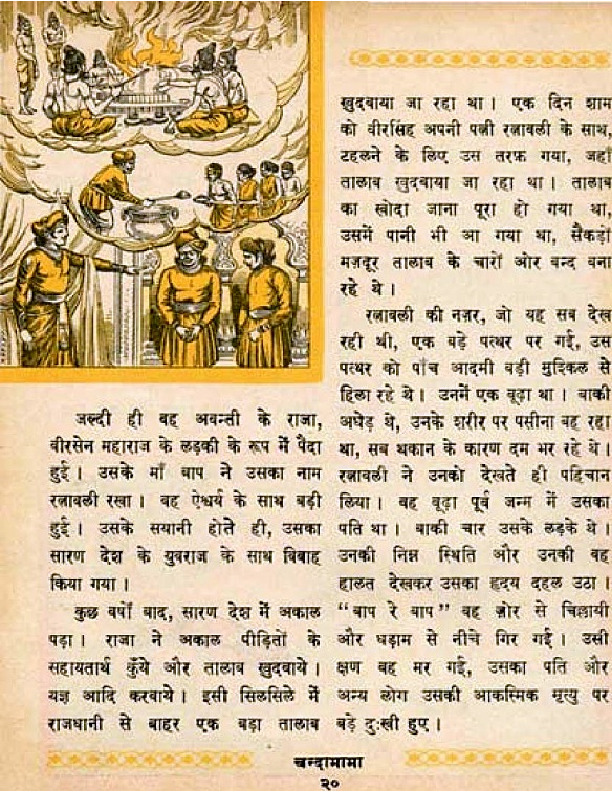 जल्दी ही वह अवन्ती के राजा,
वीरसेन महाराज के लड़की के रूप में पैदा
हुई । उसके माँ बाप ने उसका नाम
रत्नावली रखा । वह ऐश्वर्य के साथ बड़ी
हुई । उसके सयानी होते ही, उसका
सारण देश के युवराज के साथ विवाह
किया गया ।
कुछ वर्षों बाद, सारण देश में अकाल
पड़ा । राजा ने अकाल पीड़ितों के
सहायतार्थ कुँये और तालाब खुदवाये ।
यज्ञ आदि करवाये । इसी सिलसिले में
राजधानी से बाहर एक बड़ा तालाब
खुदवाया जा रहा था । एक दिन शाम
को वीरसिंह अपनी पत्नी रत्नावली के साथ,
टहलने के लिए उस तरफ़ गया, जहाँ
तालाब खुदवाया जा रहा था । तालाब
का खोदा जाना पूरा हो गया था,
उसमें पानी भी आ गया था, सैकड़ों
मज़दूर तालाब के चारों ओर बन्द बना
रहे थे ।
रत्नावली की नज़र, जो यह सब देख
रही थी, एक बड़े पत्थर पर गई, उस
पत्थर को पाँच आदमी बड़ी मुश्किल से
हिला रहे थे । उनमें एक बूढ़ा था । बाकी
अधेड़ थे, उनके शरीर पर पसीना बह रहा
था, सब थकान के कारण दम भर रहे थे ।
रत्नावली ने उनको देखते ही पहिचान
लिया । वह बूढ़ा पूर्व जन्म में उसका
पति था । बाकी चार उसके लड़के थे ।
उनकी निम्न स्थिति और उनकी वह
हालत देखकर उसका हृदय दहल उठा ।
“बाप रे बाप” वह ज़ोर से चिल्लायी
और धड़ाम से नीचे गिर गई । उसी
क्षण वह मर गई, उसका पति और
अन्य लोग उसकी आकस्मिक मृत्यु पर
बड़े दुःखी हुए ।
चन्दामामा
२०